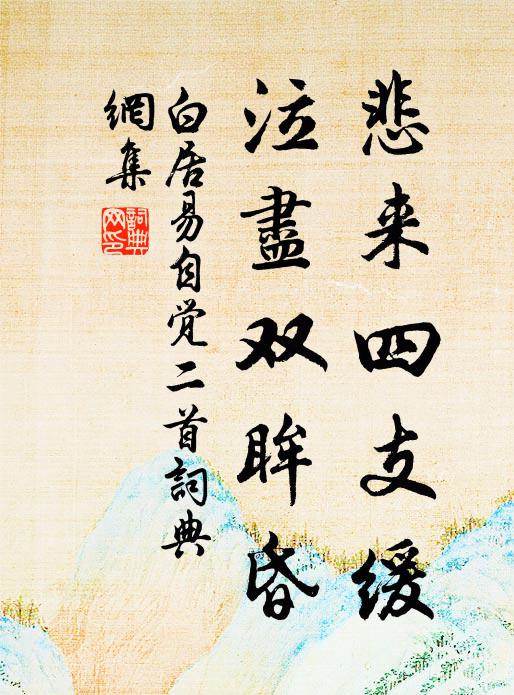 悲来四支缓
泣盡双眸昏
白居易自觉二首詞典
網集
詞典
网印